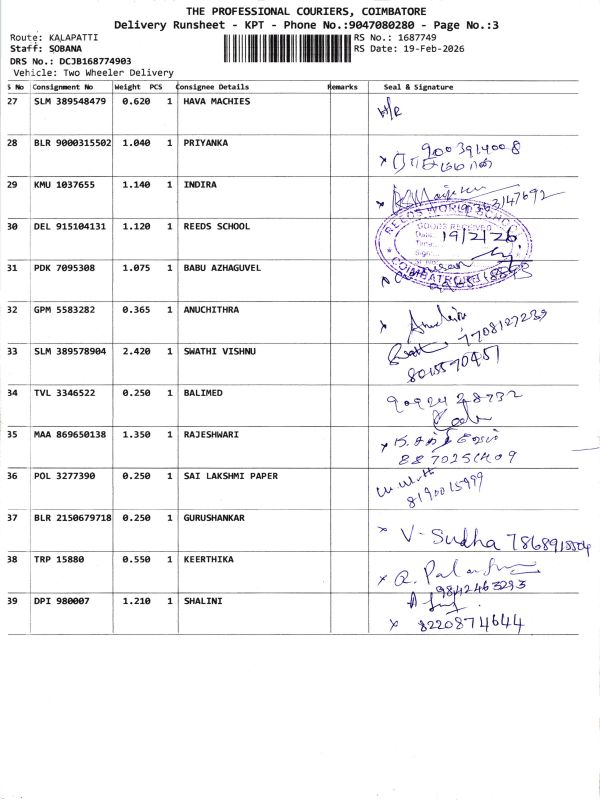 THE PROFESSIONAL COURIERS, COIMBATORE
Delivery Runsheet - KPT - Phone No.:9047080280 - Page No.:3
Route: KALAPATTI RS No.: 1687749
Staff: SOBANA RS Date: 19-Feb-2026
DRS No.: DCJB168774903
Vehicle: Two Wheeler Delivery
S No Consignment No Weight PCS Consignee Details Remarks Seal & Signature
27 SLM 389548479 0.620 1 HAVA MACHIES
28 BLR 9000315502 1.040 1 PRIYANKA 9003914008
29 KMU 1037655 1.140 1 INDIRA
30 DEL 915104131 1.120 1 REEDS SCHOOL REEDS WORLD SCHOOL
GOODS RECEIVED
Date 19/2/26
Time
Sign
COIMBATORE
31 PDK 7095308 1.075 1 BABU AZHAGUVEL
32 GPM 5583282 0.365 1 ANUCHITHRA 7708127239
33 SLM 389578904 2.420 1 SWATHI VISHNU 8015570451
34 TVL 3346522 0.250 1 BALIMED
35 MAA 869650138 1.350 1 RAJESHWARI 8870251409
36 POL 3277390 0.250 1 SAI LAKSHMI PAPER 8190015999
37 BLR 2150679718 0.250 1 GURUSHANKAR V. Sudha
38 TRP 15880 0.550 1 KEERTHIKA 9842463293
39 DPI 980007 1.210 1 SHALINI
x 8220874644